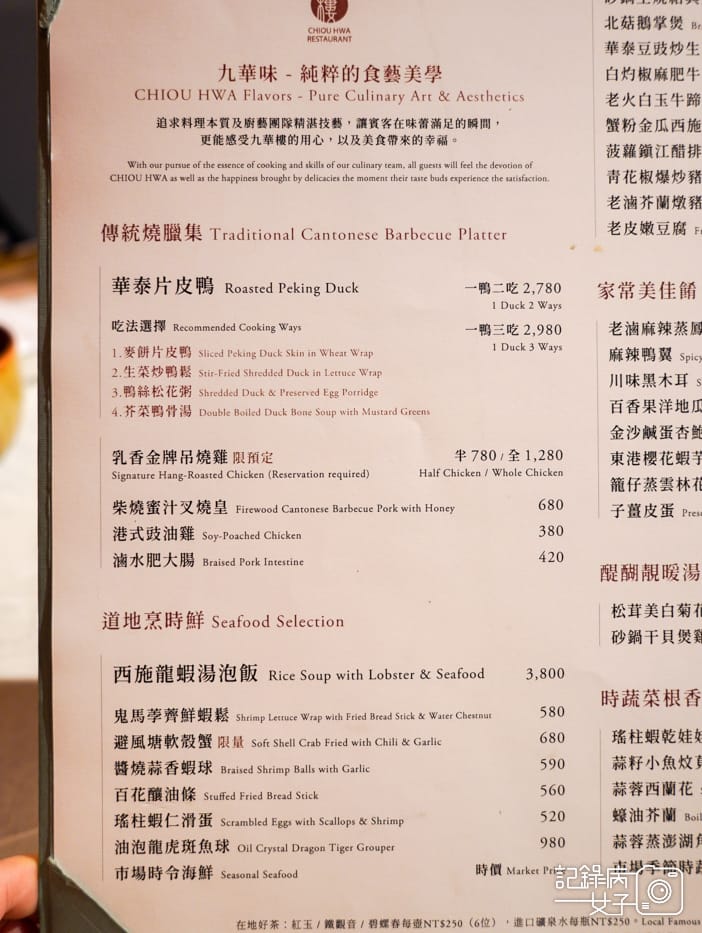 樓
CHIOU HWA
RESTAURANT
九華味 - 純粹的食藝美學
CHIOU HWA Flavors - Pure Culinary Art & Aesthetics
追求料理本質及廚藝團隊精湛技藝，讓賓客在味蕾滿足的瞬間，
更能感受九華樓的用心，以及美食帶來的幸福。
With our pursue of the essence of cooking and skills of our culinary team, all guests will feel the devotion of
CHIOU HWA as well as the happiness brought by delicacies the moment their taste buds experience the satisfaction.
傳統燒臘集 Traditional Cantonese Barbecue Platter
華泰片皮鴨 Roasted Peking Duck 一鴨二吃 2,780
1 Duck 2 Ways
吃法選擇 Recommended Cooking Ways 一鴨三吃 2,980
1 Duck 3 Ways
1.麥餅片皮鴨 Sliced Peking Duck Skin in Wheat Wrap
2.生菜炒鴨鬆 Stir-Fried Shredded Duck in Lettuce Wrap
3.鴨絲松花粥 Shredded Duck & Preserved Egg Porridge
4.芥菜鴨骨湯 Double Boiled Duck Bone Soup with Mustard Greens
乳香金牌吊燒雞 限預定 半 780 / 全 1,280
Signature Hang-Roasted Chicken (Reservation required) Half Chicken / Whole Chicken
柴燒蜜汁叉燒皇 Firewood Cantonese Barbecue Pork with Honey 680
港式豉油雞 Soy-Poached Chicken 380
滷水肥大腸 Braised Pork Intestine 420
道地烹時鮮 Seafood Selection
西施龍蝦湯泡飯 Rice Soup with Lobster & Seafood 3,800
鬼馬荸薺鮮蝦鬆 Shrimp Lettuce Wrap with Fried Bread Stick & Water Chestnut 580
避風塘軟殼蟹 限量 Soft Shell Crab Fried with Chili & Garlic 680
醬燒蒜香蝦球 Braised Shrimp Balls with Garlic 590
百花釀油條 Stuffed Fried Bread Stick 560
瑤柱蝦仁滑蛋 Scrambled Eggs with Scallops & Shrimp 520
油泡龍虎斑魚球 Oil Crystal Dragon Tiger Grouper 980
市場時令海鮮 Seasonal Seafood 時價 Market
在地好茶：紅玉 / 鐵觀音 / 碧螺春每壺NT$250（6位），進口礦泉水每瓶NT$250。Local Famous
北菇鵝掌煲
華泰豆豉炒生
白灼椒麻肥牛
老火白玉牛蹄
蟹粉金瓜西施
菠蘿鎮江醋排
青花椒爆炒豬
老滷芥蘭燉豬
老皮嫩豆腐
家常美佳餚
老滷麻辣蒸鳳
麻辣鴨翼 Spicy
川味黑木耳
百香果洋地瓜
金沙鹹蛋杏鮑
東港櫻花蝦芋
籠仔蒸雲林花
子薑皮蛋
醍醐靚暖湯
松茸美白菊花
砂鍋干貝煲雞
時蔬菜根香
瑤柱蝦乾娃娃
蒜籽小魚炆莧
蒜蓉西蘭花
蠔油芥蘭
蒜蓉蒸澎湖角
市場季節時蔬
記錄丙
一女子